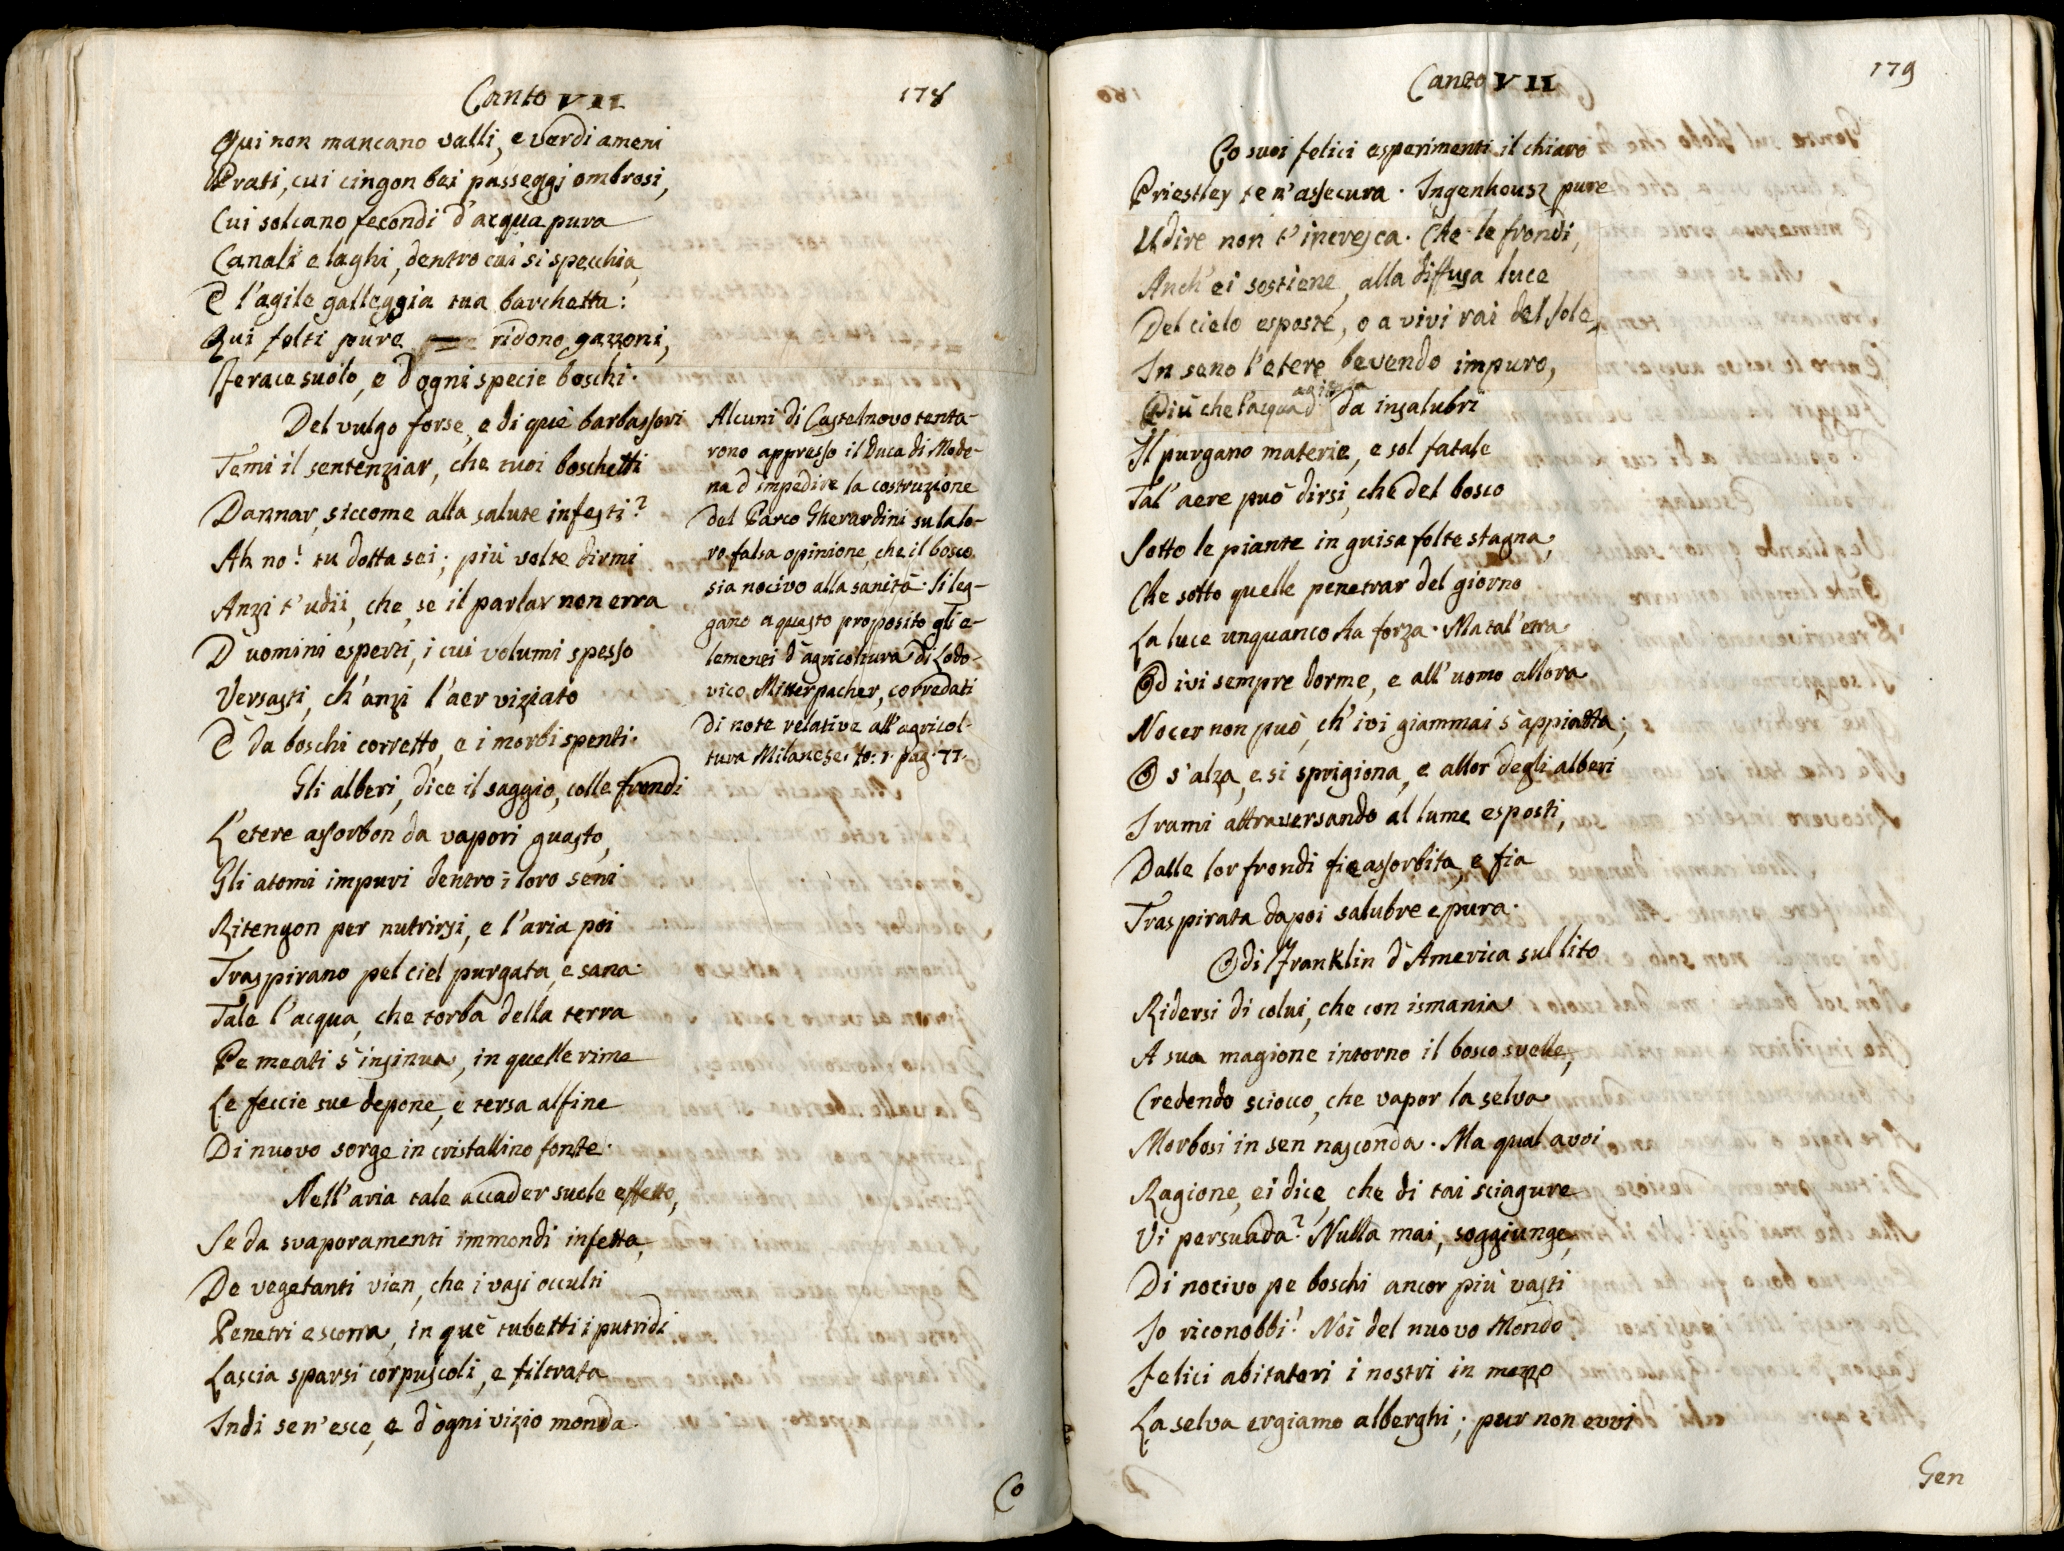 Canto VII
178
Qui non mancano valli, e verdi ameni
Prati, cui cingon bei passeggj ombrosi,
Cui solcano fecondi d'acqua pura
Canali e laghi, dentro cui si specchia,
E l'agile galleggia tua barchetta:
Qui folti pure ridono gazzoni,
Ferace suolo, e d'ogni specie boschi.
Del vulgo forse, e di què barbassori
Temi il sentenziar, che tuoi boschetti
Dannar, siccome alla salute infesti?
Ah no! tu dotta sei; più volte dirmi
Anzi t'udii, che, se il parlar non erra
D'uomini esperti, i cui volumi spesso
Versasti, ch'anzi l'aer viziato
È da boschi corretto, e i morbi spenti.
Gli alberi, dice il saggio, colle frondi
L'etere assorbon da vapori guasto,
Gli atomi impuri dentro i loro seni
Ritengon per nutrirsi, e l'aria poi
Traspirano pel ciel purgata, e sana.
Tale l'acqua, che torba della terra
Pe meati s'insinua, in quelle rime
Le feccie sue depone, e tersa alfine
Di nuovo sorge in cristallino fonte.
Nell'aria tale accader suole effetto,
Se da svaporamenti immondi infetta,
De vegetanti vien, che i vasi occulti
Penetri e scorra, in què tubetti i putridi
Lascia sparsi corpuscoli, e filtrata
Indi sen'esce, e d'ogni vizio monda.
Alcuni di Castelnovo tenta-
rono appresso il Duca di Mode-
na d'impedire la costruzione
del Parco Gherardini su la lo-
ro falsa opinione, che il bosco
sia nocivo alla sanità. Si leg-
gano a questo proposito gli e-
lementi d'agricoltura di Lodo-
vico Mitterpacher, corredati
di note relative all'agricol-
tura Milanese. to: 1. pag. 77.
Co
Canto VII
179
Co suoi felici esperimenti il chiaro
Priestley te n'assecura. Ingenhousz pure
Udire non t'incresca. Che le frondi,
Anch'ei sostiene, alla diffusa luce
Del cielo esposte, o a vivi rai del sole,
In seno l'etere bevendo impuro,
Più che l'acqua agitata da insalubri
Il purgano materie, e sol fatale
Tal'aere può dirsi, che del bosco
Sotto le piante in guisa folte stagna,
Che sotto quelle penetrar del giorno
La luce unquanco ha forza. Ma tal'erra
Od ivi sempre dorme, e all'uomo allora
Nocer non può, ch'ivi giammai s'appiatta;
O s'alza, e si sprigiona, e allor degli alberi
I rami attraversando al lume esposti,
Dalle lor frondi fie assorbita, e fia
Traspirata dapoi salubre e pura.
Odi Franklin d'America sul lito
Ridersi di colui, che con ismania
A sua magione intorno il bosco svelle,
Credendo sciocco, che vapor la selva
Morbosi in sen nasconda. Ma qual avvi
Ragione, ei dice, che di tai sciagure
Vi persuada? Nulla mai, soggiunge,
Di nocivo pe boschi ancor più vasti
Io riconobbi! Noi del nuovo Mondo
Felici abitatori i nostri in mezzo
La selva ergiamo alberghi; pur non evvi
Gen